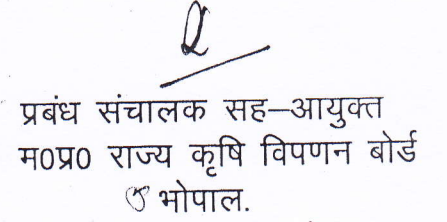 प्रबंध संचालक सह–आयुक्त
म0प्र0 राज्य कृषि विपणन बोर्ड
भोपाल.